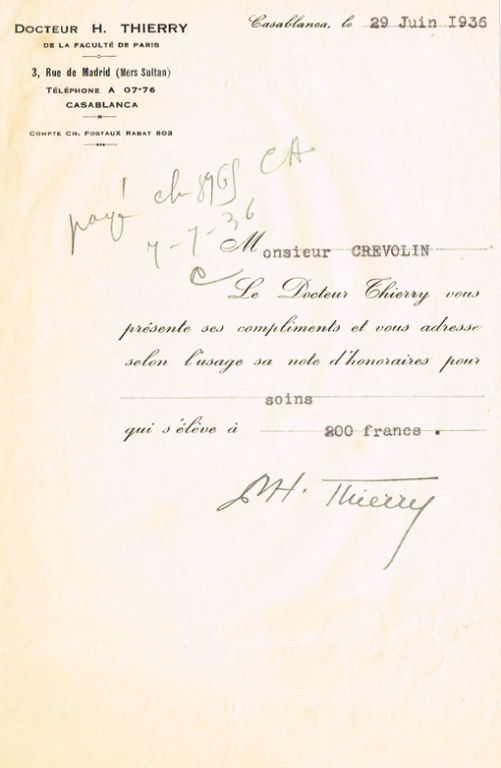 DOCTEUR H. THIERRY
DE LA FACULTÉ DE PARIS
3, Rue de Madrid (Mers Sultan)
TÉLÉPHONE A 07-76
CASABLANCA
COMPTE CH. POSTAUX RABAT 603
Casablanca, le 29 Juin 1936
payé ch
7-7-36
Monsieur CREVOLIN
Le Docteur Thierry vous
présente ses compliments et vous adresse
selon l'usage sa note d'honoraires pour
soins
qui s'élève à 200 francs.
H. Thierry